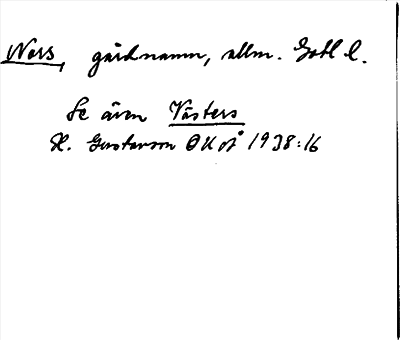 Nors, gårdnamn, allm. Gotl l.
Se även Västers
H. Gustavson OUÅ 1938:16